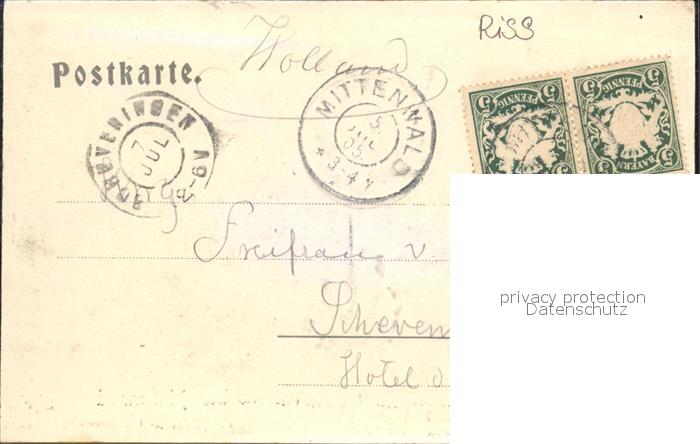 RiSS
Holland
Postkarte.
MITTENWALD
5
JUL
05
3-4
SCHEVENINGEN
7
JUL
5 PFENNIG 5
BAYERN
5 PFENNIG 5
BAYERN
Freifrau v
Scheven
Hotel d
privacy protection
Datenschutz